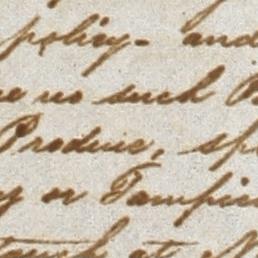 policy- and
no such
Produce, sp
or Tampico
at